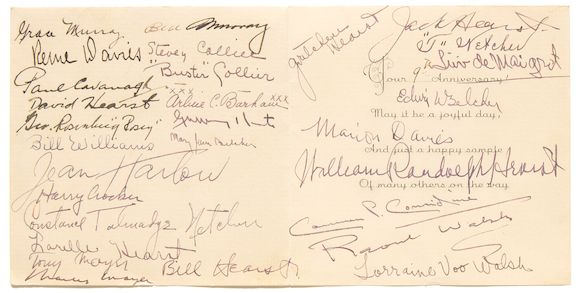 Bill Murray
Rene Davies
Stevey Collier
"Buster" Collier
Paul Cavanagh
xxx
David Hearst
Arline C. Barham xxx
Geo. Rosenberg "Rosey"
Bill Williams
Mary Jane Belcher
Jean Harlow
Harry Crocker
Constance Talmadge Netcher
Lorelle Hearst
Tony Mayer
Bill Hearst
Gretchen Hearst
Jack Hearst
"T" Netcher
Siv de Maigret
Your Anniversary!
Edw W Belcher
May it be a joyful day,
Marion Davies
And just a happy sample
William Randolph Hearst
Of many others on the way.
Raoul Walsh
Lorraine Walsh